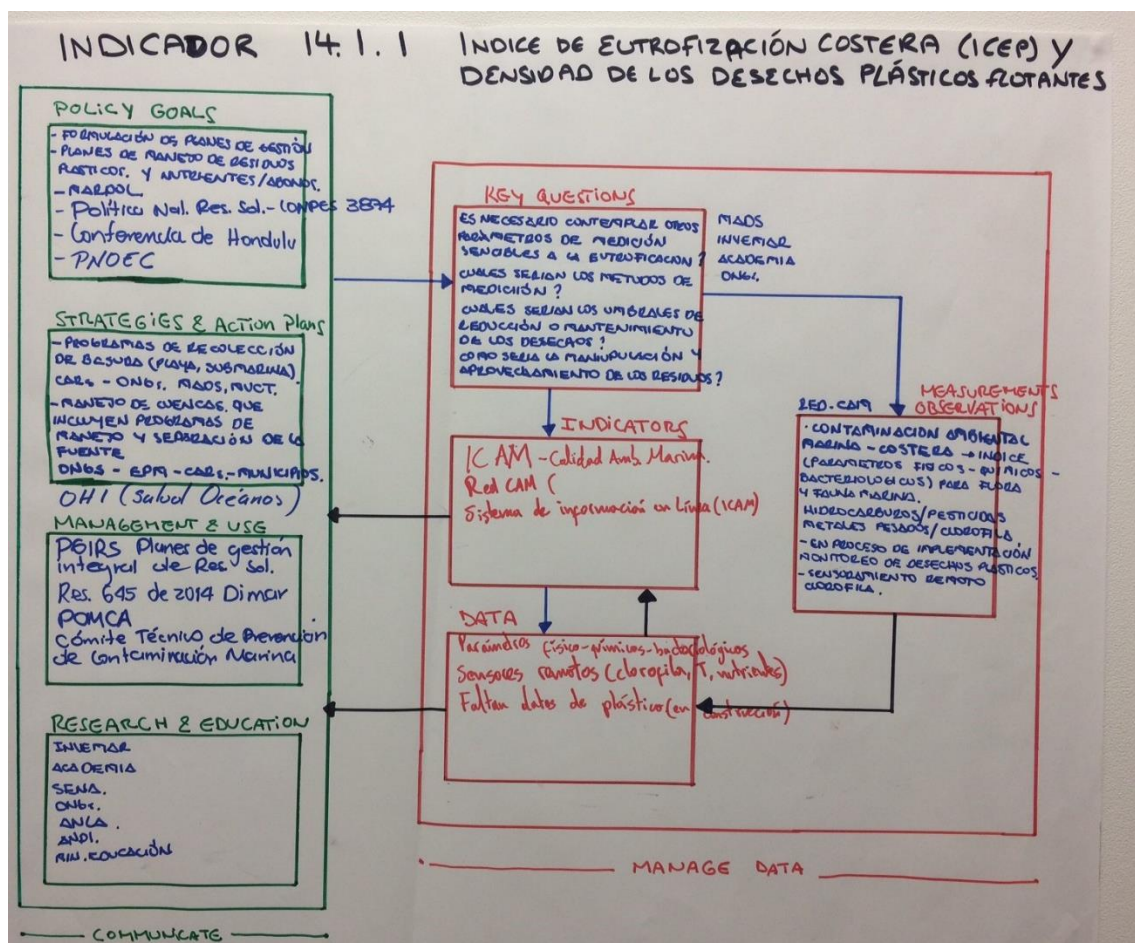 INDICADOR 14.1.1 INDICE DE EUTROFIZACIÓN COSTERA (ICEP) Y
DENSIDAD DE LOS DESECHOS PLÁSTICOS FLOTANTES
POLICY GOALS
- FORMULACIÓN DE PLANES DE GESTIÓN
- PLANES DE MANEJO DE RESIDUOS
PLASTICOS. Y NUTRIENTES/ABONOS.
- MARPOL
- Política Nal. Res. Sol. - CONPES 3874
- Conferencia de Honolulu
- PNOEC
STRATEGIES & ACTION Plans
- PROGRAMAS DE RECOLECCIÓN
DE BASURA (PLAYA, SUBMARINA).
CARs - ONGs. MADS, MVCT.
- MANEJO DE CUENCAS, QUE
INCLUYEN PROGRAMAS DE
MANEJO Y SEPARACIÓN DE LA
FUENTE
ONGs - EPM - CARs. - MUNICIPIOS.
OHI (Salud Océanos)
MANAGEMENT & USE
PGIRS Planes de gestión
integral de Res. Sol.
Res. 645 de 2014 Dimar
POMCA
Cómite Técnico de Prevención
de Contaminación Marina
RESEARCH & EDUCATION
INVEMAR
ACADEMIA
SENA.
ONGs.
ANLA.
ANDI.
MIN. EDUCACIÓN
COMMUNICATE
KEY QUESTIONS
ES NECESARIO CONTEMPLAR OTROS
PARÁMETROS DE MEDICIÓN
SENCIBLES A LA EUTROFICACION?
CUALES SERIAN LOS METODOS DE
MEDICIÓN?
CUALES SERIAN LOS UMBRALES DE
REDUCCIÓN O MANTENIMIENTO
DE LOS DESECHOS?
COMO SERIA LA MANIUPULACIÓN Y
APROVECHAMIENTO DE LOS RESIDUOS?
MADS
INVEMAR
ACADEMIA
ONGs.
INDICATORS
ICAM - Calidad Amb. Marina.
Red CAM (
Sistema de información en Línea (ICAM)
DATA
Parámetros físico-químicos-bacteriológicos
Sensores remotos (clorofila, T, nutrientes)
Faltan datos de plástico (en construcción)
MEASUREMENTS
OBSERVATIONS
RED. CAM
· CONTAMINACIÓN AMBIENTAL
MARINA - COSTERA → INDICE
(PARAMETROS FISICOS - QUIMICOS -
BACTERIOLOGICOS) PARA FLORA
Y FAUNA MARINA.
HIDROCARBUROS/PESTICIDAS
METALES PESADOS/CLOROFILA
- EN PROCESO DE IMPLEMENTACIÓN
MONITOREO DE DESECHOS PLÁSTICOS.
- SENSORAMIENTO REMOTO
CLOROFILA.
MANAGE DATA